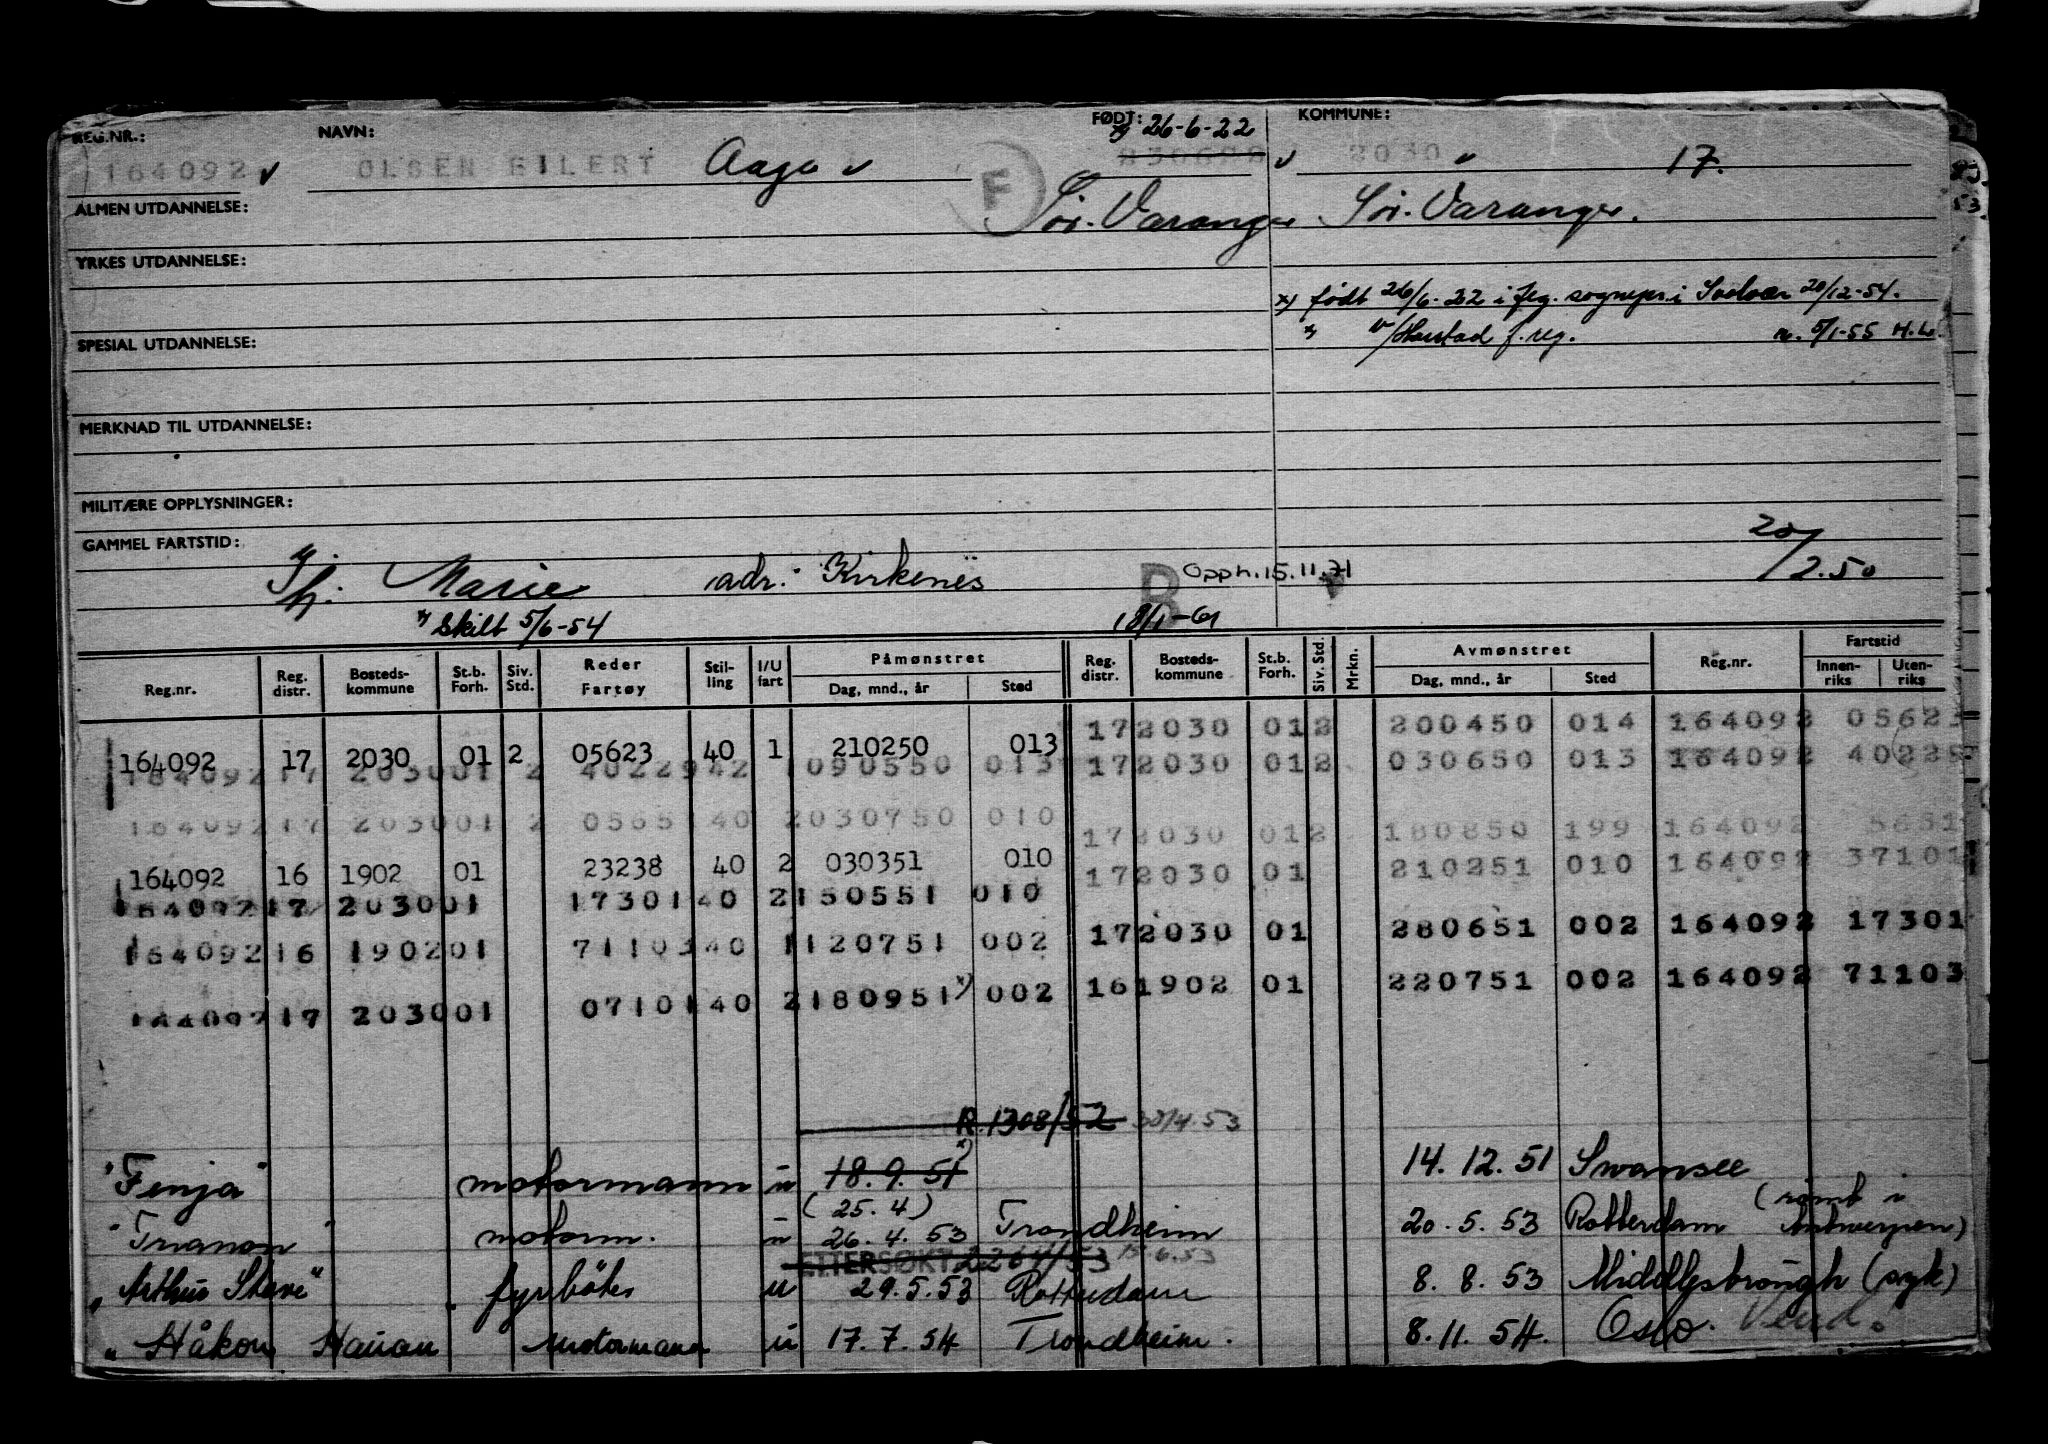 REG.NR.: NAVN: FØDT: KOMMUNE:
164092 v OLSEN EILERT Aage v F x) 26-6-22 v 2030 v 17.
ALMEN UTDANNELSE: Sör-Varanger Sör-Varanger.
YRKES UTDANNELSE:
x) født 26/6-22 i flg. sognepr. i Svolvær 20/12-54.
SPESIAL UTDANNELSE: v/Harstad f. reg. 5/1-55 H.L.
MERKNAD TIL UTDANNELSE:
MILITÆRE OPPLYSNINGER:
GAMMEL FARTSTID: 20/2.50
Marie adr. Kirkenes R Opph. 15.11.71
x) Skilt 5/6-54 18/1-61
Reg.nr. Reg. distr. Bosteds-kommune St.b. Forh. Siv. Std. Reder Fartøy Stil-ling I/U fart Påmønstret Dag, mnd., år Sted Reg. distr. Bosteds-kommune St.b. Forh. Siv. Std. Mrkn. Avmønstret Dag, mnd., år Sted Reg.nr. Fartstid Innen-riks Uten-riks
172030 012 200450 014 164092 05623
164092 17 2030 01 2 05623 40 1 210250 013
164092 17 2030 01 2 40229 42 1 090550 013 172030 012 030650 013 164092 40229
164092 17 2030 01 2 0565 40 2 030750 010 172030 012 180850 199 164092 5651
164092 16 1902 01 23238 40 2 030351 010 172030 01 210251 010 164092 37101
164092 17 2030 01 17301 40 2 150551 010
172030 01 280651 002 164092 17301
164092 16 1902 01 71103 40 1 120751 002
161902 01 220751 002 164092 71103
164092 17 2030 01 07101 40 2 180951 x) 002
R. 1308/52 30/4.53
"Fenja" motormann u 18.9.51 x) 14.12.51 Swansee
(25.4) (römt i
"Trianon" motorm. u 26.4.53 Trondheim 20.5.53 Rotterdam Antwerpen)
ETTERSØKT 2264/53 15.6.53
"Arthur Stove" fyrböter u 29.5.53 Rotterdam 8.8.53 Middlesbrough (syk)
"Håkon Hauan motormann u 17.7.54 Trondheim. 8.11.54. Oslo. Vend.